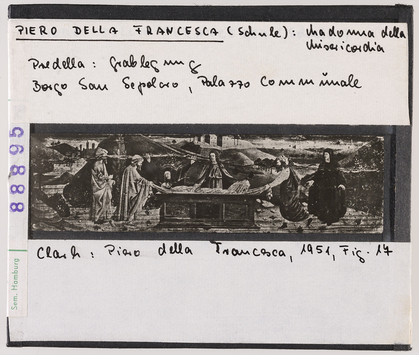 PIERO DELLA FRANCESCA (Schule): Madonna della
Misericordia
Predella: Grablegung
Borgo San Sepolcro, Palazzo Communale
88895
Sem. Hamburg
Clark: Piero della Francesca, 1951, Fig. 17